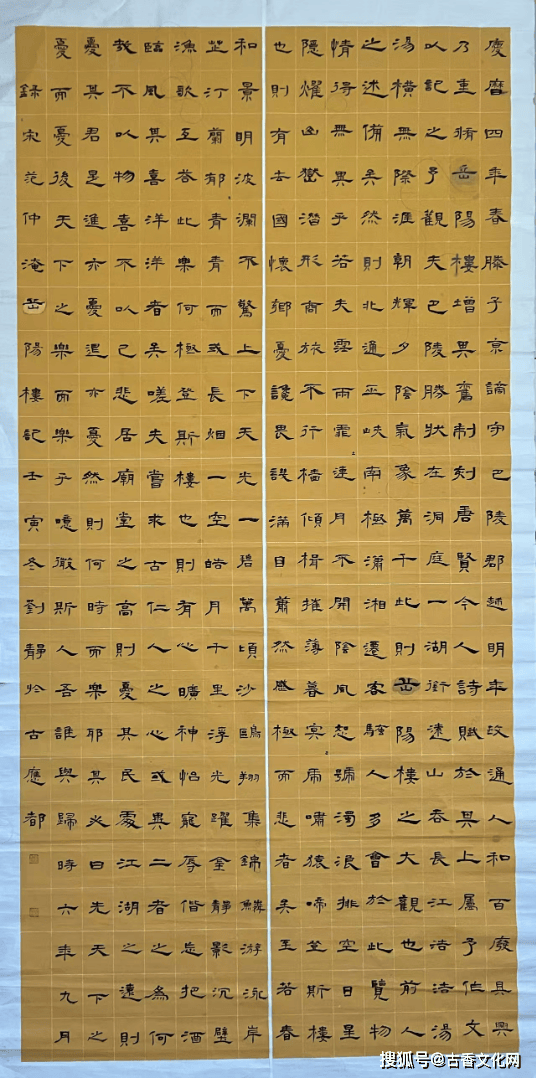 慶曆四年春滕子京謫守巴陵郡越明年政通人和百廢具興
乃重脩岳陽樓增其舊制刻唐賢今人詩賦於其上屬予作文
以記之予觀夫巴陵勝狀在洞庭一湖銜遠山吞長江浩浩湯
湯橫無際涯朝輝夕陰氣象萬千此則岳陽樓之大觀也前人
之述備矣然則北通巫峽南極瀟湘遷客騷人多會於此覽物
情得無異乎若夫霪雨霏〻連月不開陰風怒號濁浪排空日星
隱燿山嶽潛形商旅不行檣傾楫摧薄暮冥〻虎嘯猿啼登斯樓
也則有去國懷鄉憂讒畏譏滿目蕭然感極而悲者矣至若春
和景明波瀾不驚上下天光一碧萬頃沙鷗翔集錦鱗游泳岸
芷汀蘭郁青青而或長烟一空皓月千里浮光躍金靜影沉璧
漁歌互答此樂何極登斯樓也則有心曠神怡寵辱偕忘把酒
臨風其喜洋洋者矣嗟夫嘗求古仁人之心或異二者之為何
哉不以物喜不以己悲居廟堂之高則憂其民處江湖之遠則
憂其君是進亦憂退亦憂然則何時而樂耶其必曰先天下之
憂而憂後天下之樂而樂乎噫微斯人吾誰與歸時六年九月
錄宋范仲淹岳陽樓記壬寅冬劉靜於古應都
搜狐号@古香文化网